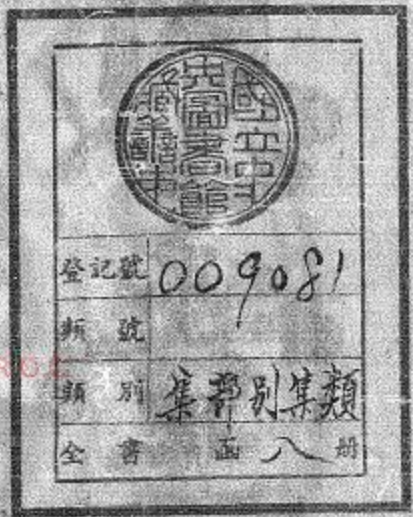 國立中央圖書館
登記號 009081
類號
類別 集部別集類
全書 函 八 册